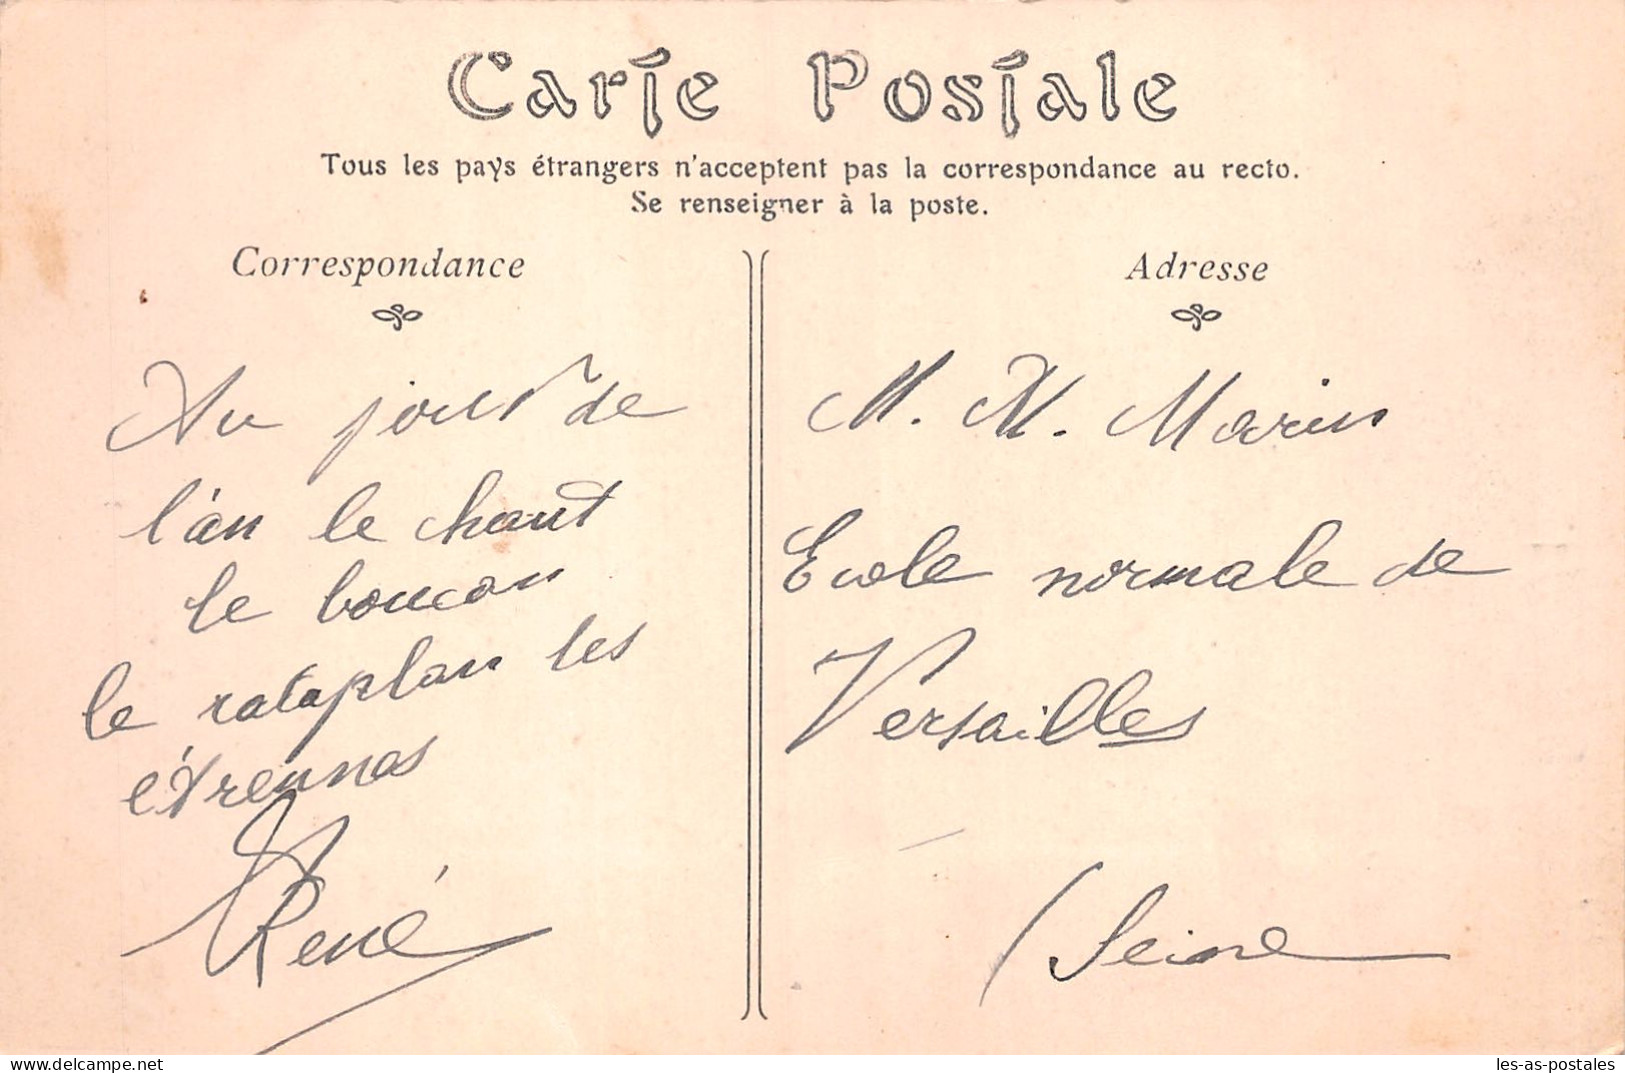 Carte Postale
Tous les pays étrangers n'acceptent pas la correspondance au recto.
Se renseigner à la poste.
Correspondance
Au jour de
l'an le chant
le boucan
le rataplan les
étrennes
René
Adresse
M. M. Marius
Ecole normale de
Versailles
(Seine
www.delcampe.net
les-as-postales